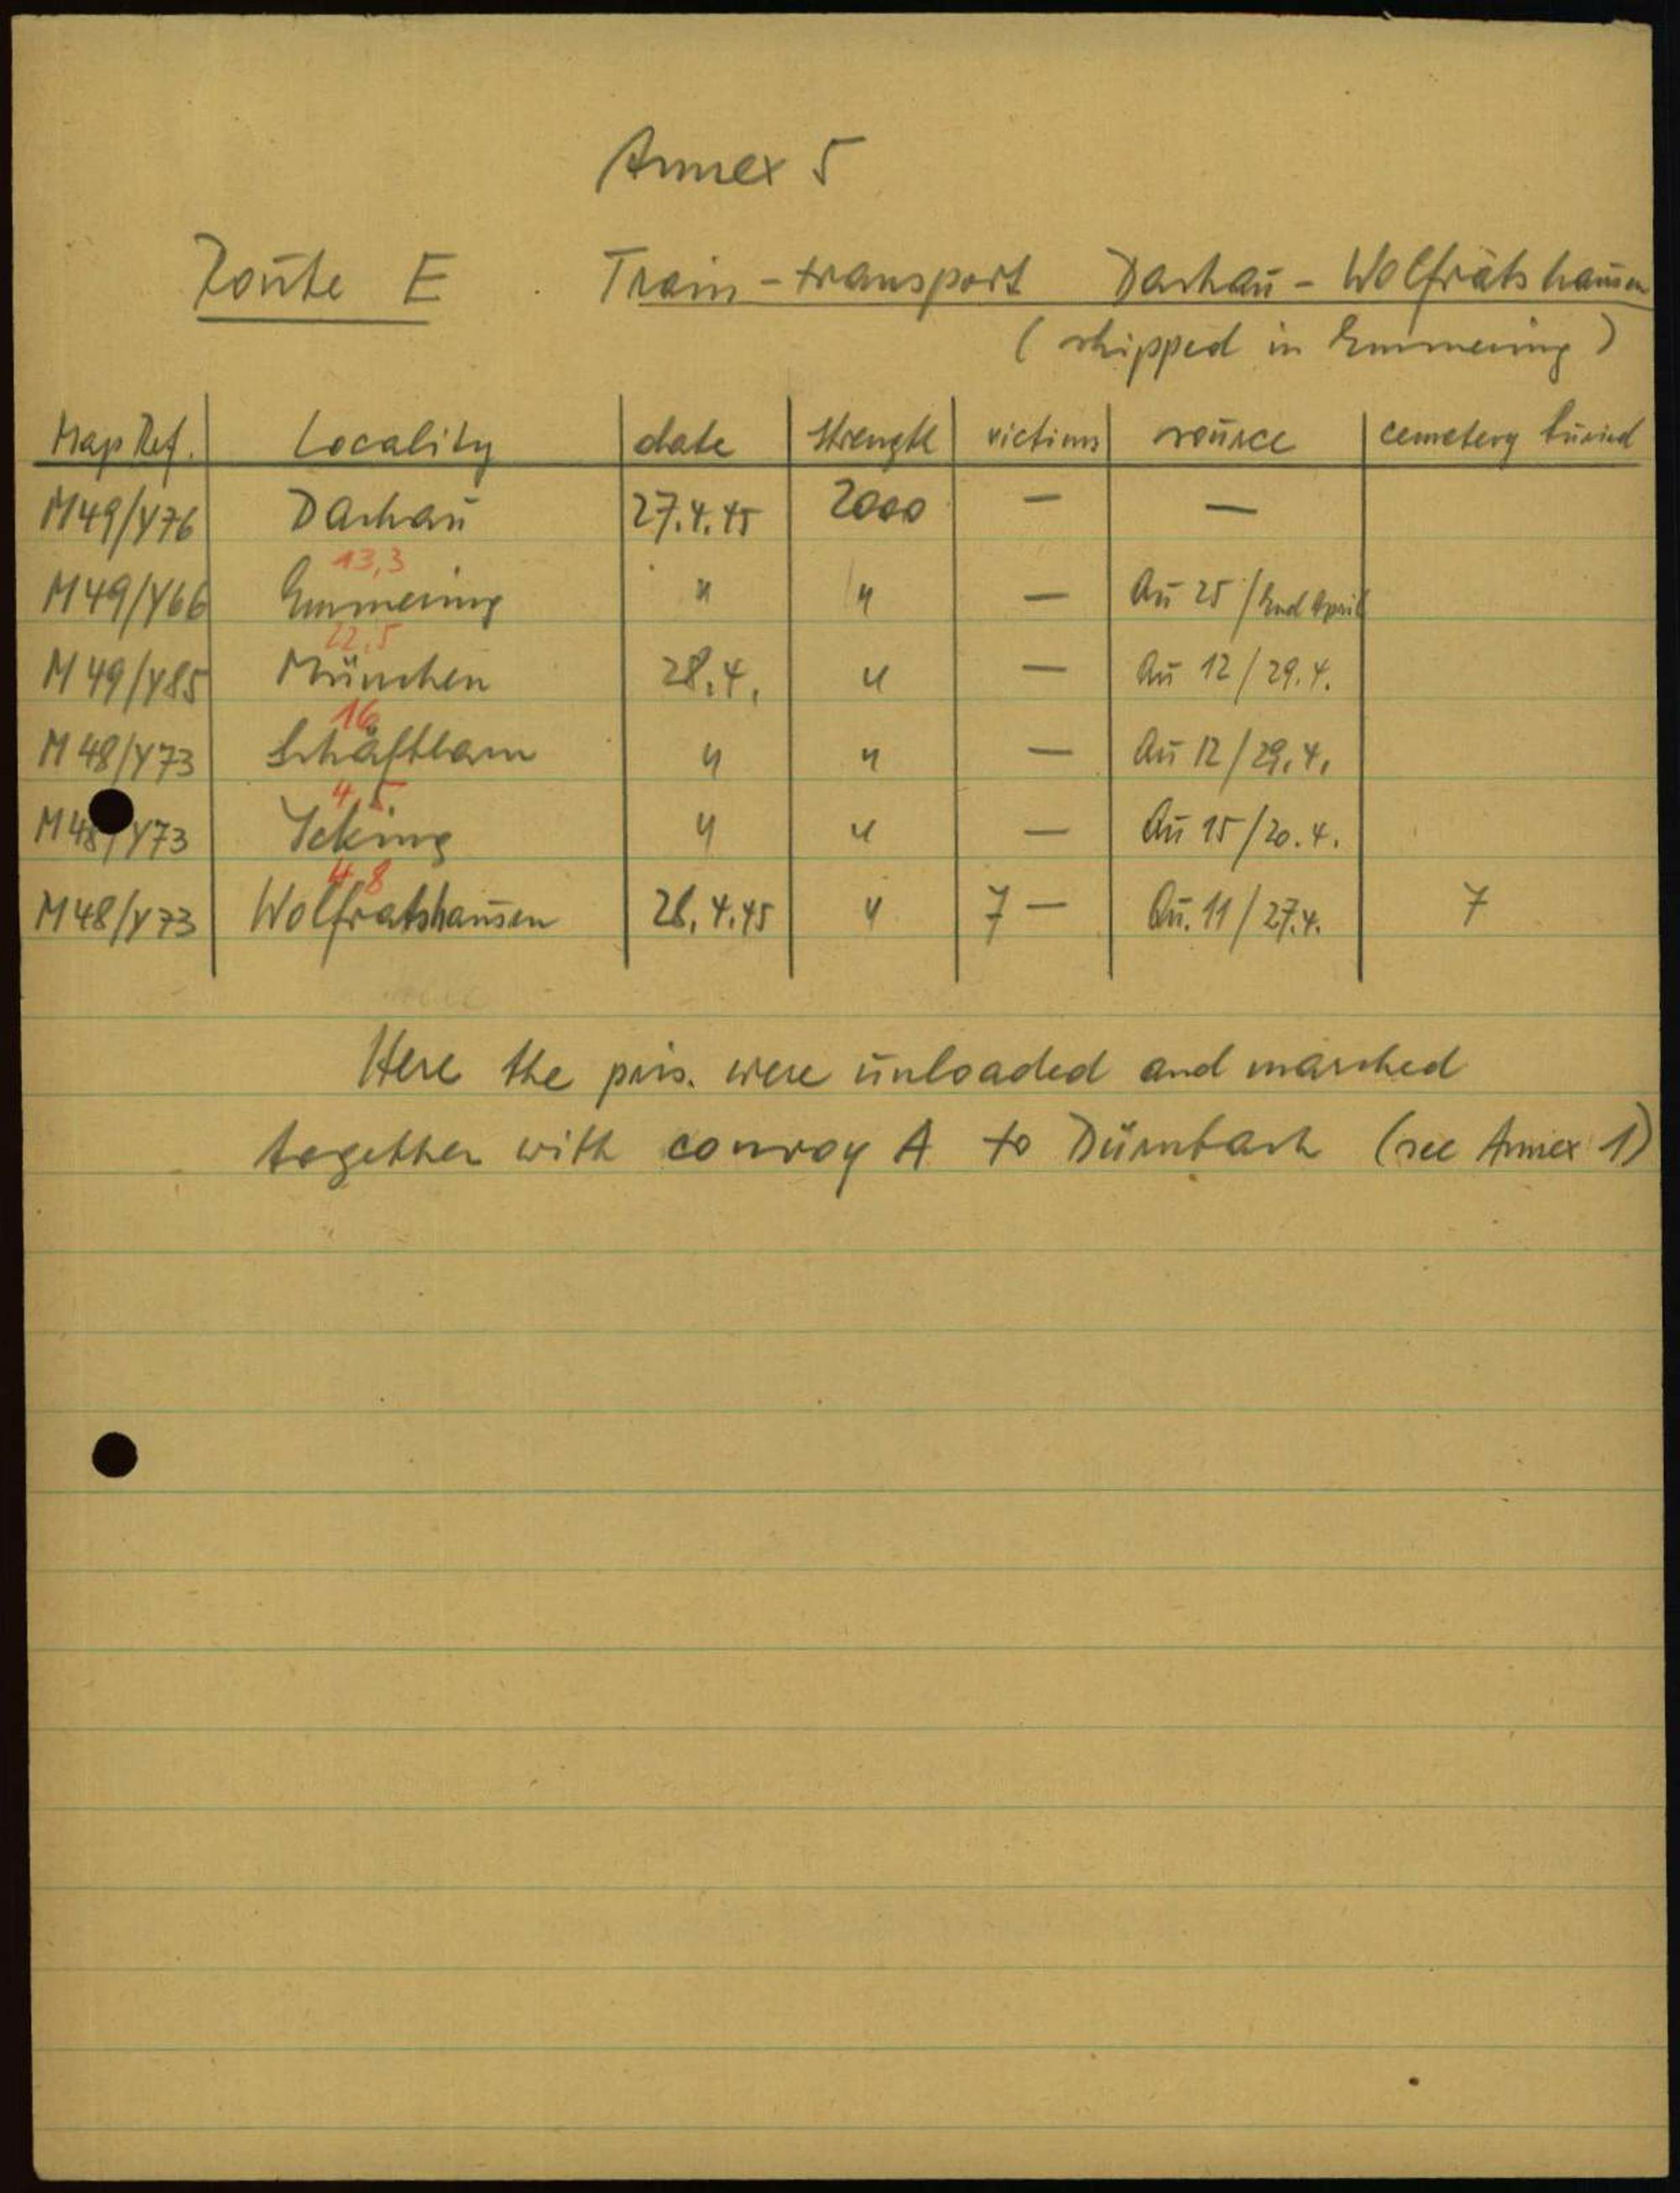 Annex 5
Route E Train-transport Dachau - Wolfratshausen
(shipped in Emmering)
Map Ref. Locality date strength victims source cemetery buried
M49/Y76 Dachau 27.4.45 2000 — —
13,3
M49/Y66 Emmering " " — Au 25/End April
22,5
M49/Y85 München 28.4. " — Au 12/29.4.
16
M48/Y73 Schäftlarn " " — Au 12/29.4.
4,5
M48/Y73 Icking " " — Au 15/20.4.
4,8
M48/Y73 Wolfratshausen 28.4.45 " 7 — Au. 11/27.4. 7
Here the pris. were unloaded and marched
together with convoy A to Dürnbach (see Annex 1)